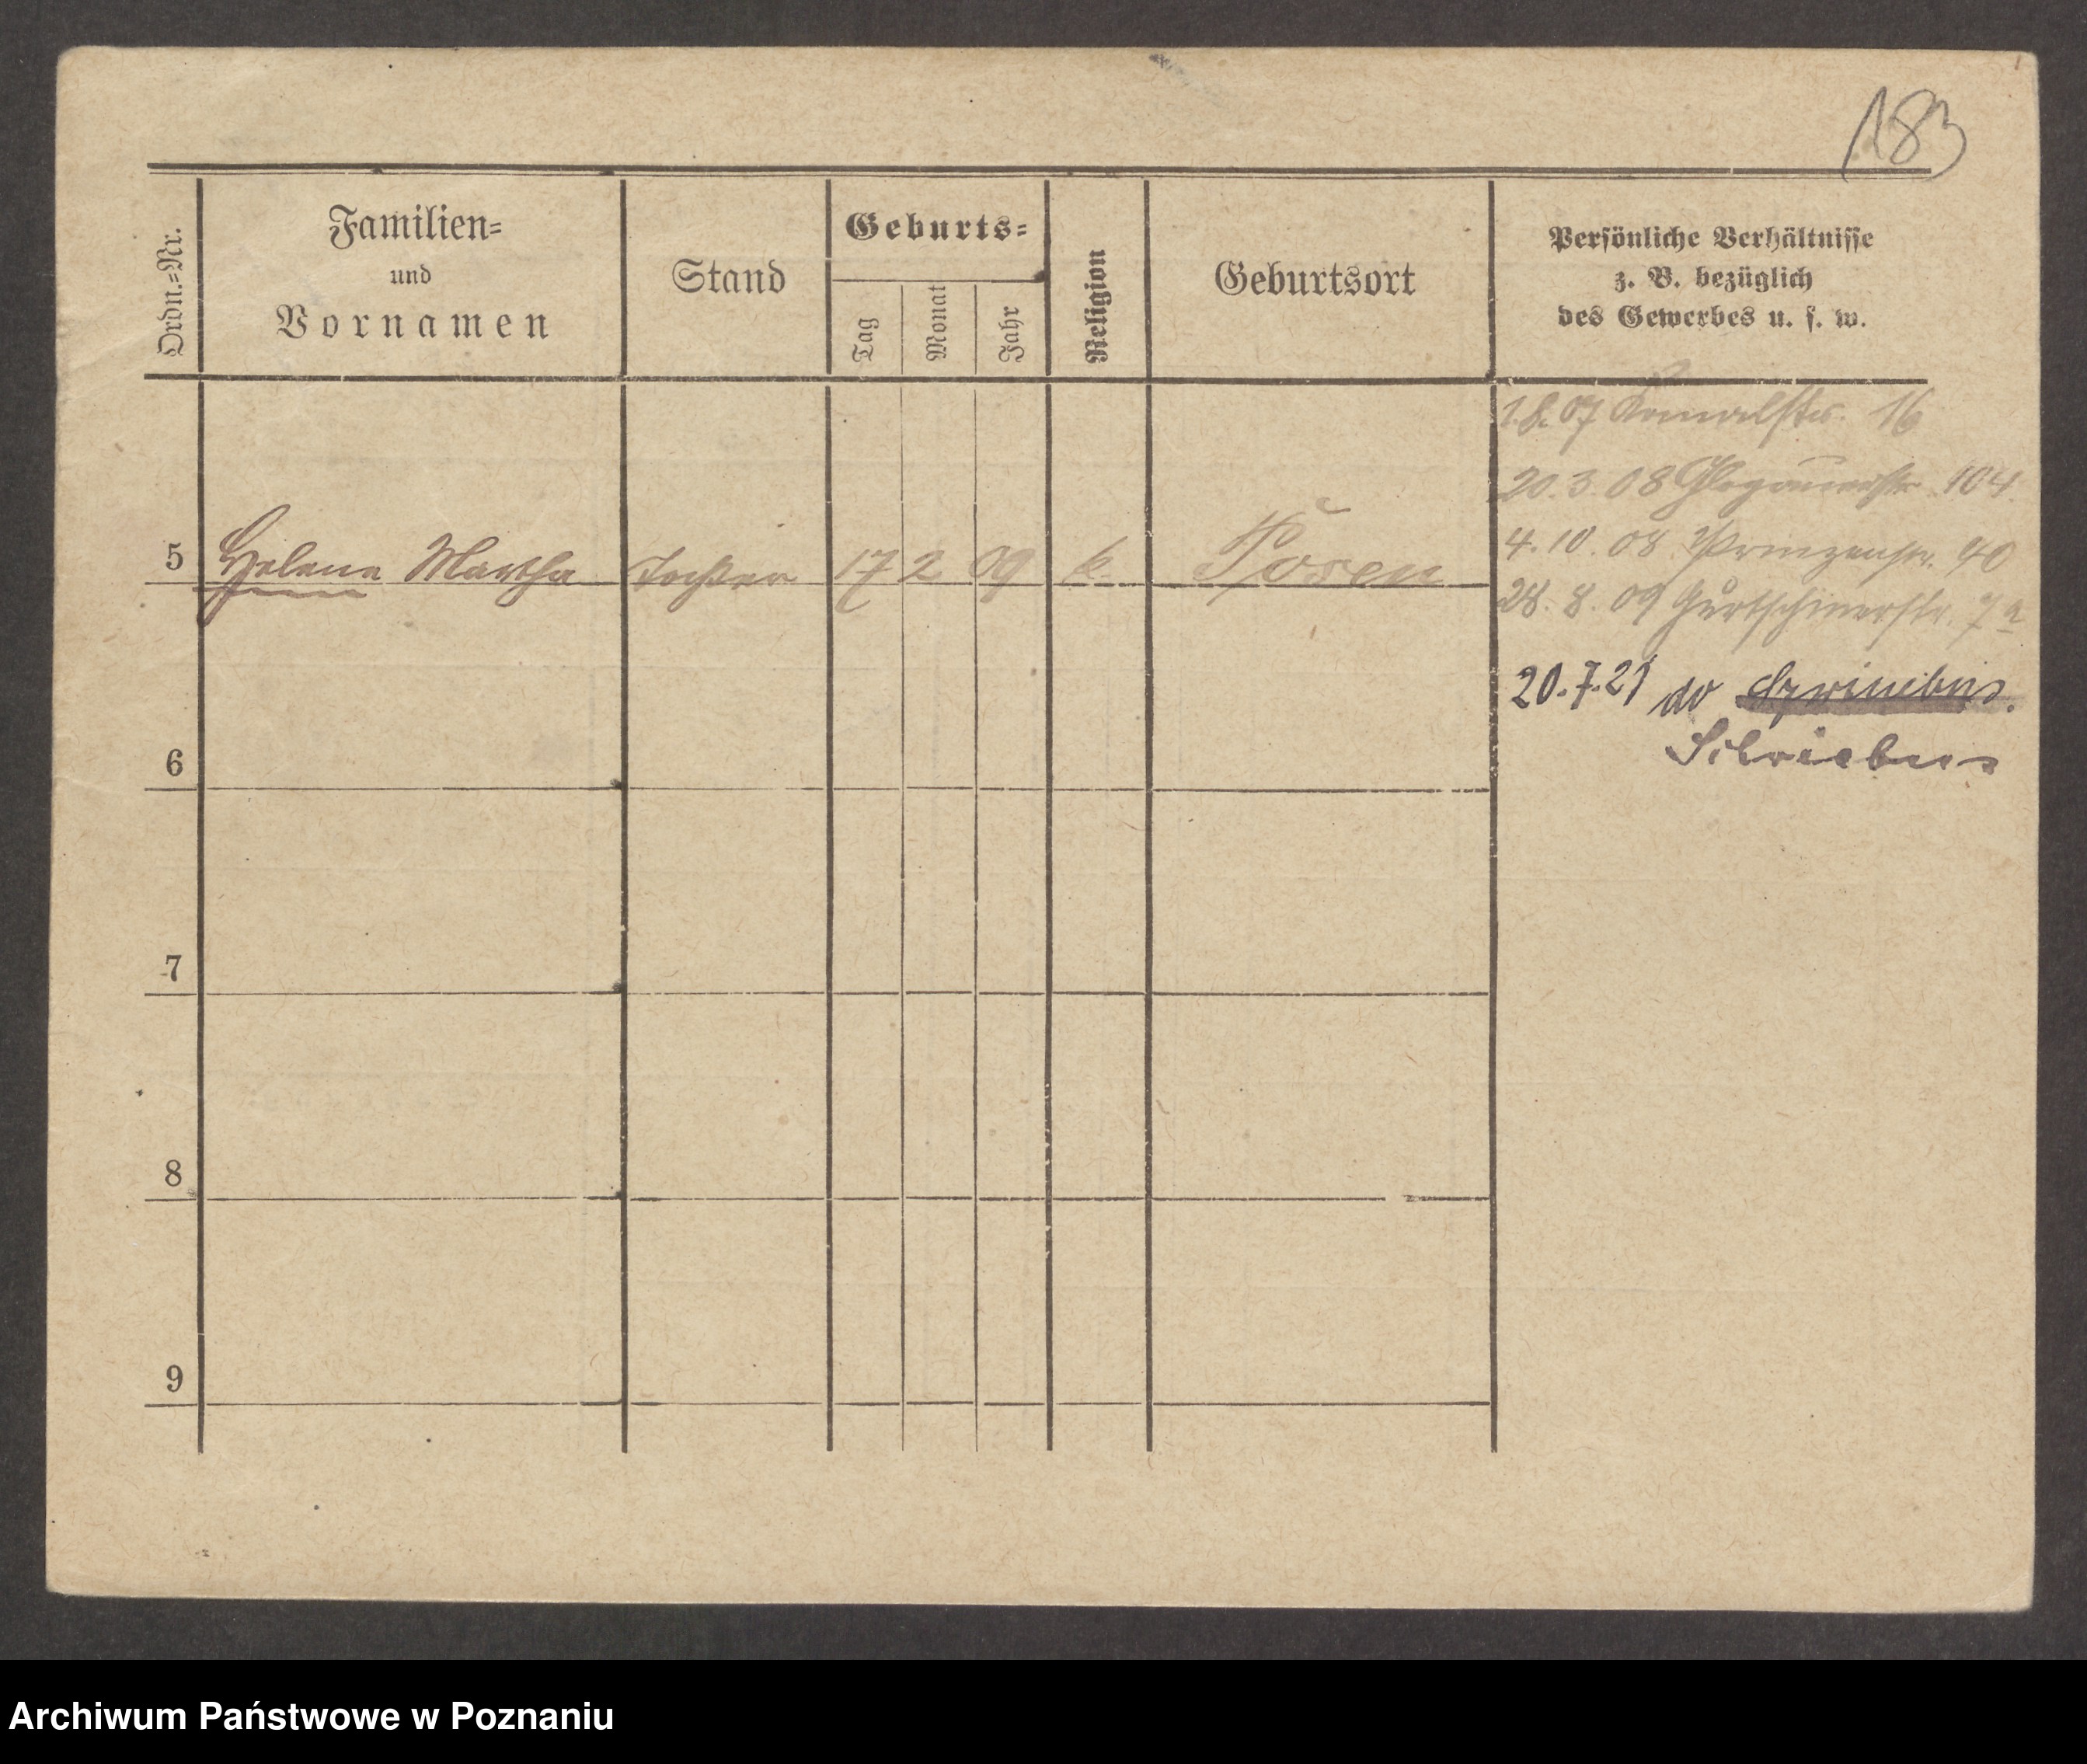 183
Ordn.=Nr.
Familien=
und
Vornamen
Stand
Geburts=
Tag
Monat
Jahr
Religion
Geburtsort
Persönliche Verhältnisse
z. B. bezüglich
des Gewerbes u. s. w.
1.8.07 16
20.3.08 Glogauerstr. 104.
4.10.08 Prinzenstr. 40
5 Helene Martha Tochter 17 2 09 k. Posen
28.8.09 Gurtschinerstr. 7a
20.7.21 do
6
7
8
9
Archiwum Państwowe w Poznaniu